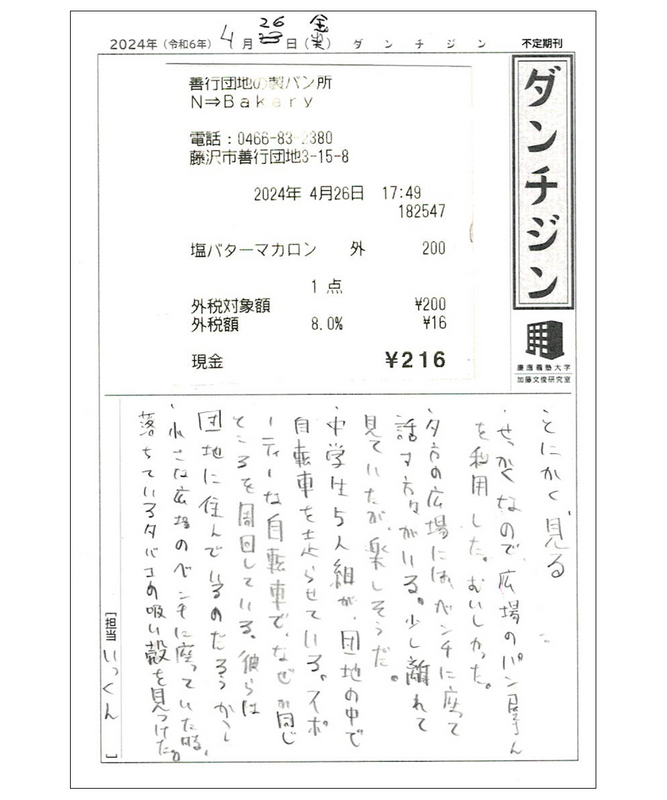 2024年（令和6年）4月26日（金）ダンチジン 不定期刊
ダンチジン
慶應義塾大学
加藤文俊研究室
善行団地の製パン所
N⇒Bakary
電話：0466-83-2380
藤沢市善行団地3-15-8
2024年 4月26日 17:49
182547
塩バターマカロン 外 200
1 点
外税対象額 ¥200
外税額 8.0% ¥16
現金 ¥216
とにかく、見る
・せっかくなので、広場のパン屋さん
を利用した。おいしかった。
・夕方の広場には、ベンチに座って
話す方々がいる。少し離れて
見ていたが、楽しそうだ。
・中学生5人組が、団地の中で
自転車を走らせている。スポ
ーティーな自転車で、なぜか同じ
ところを周回している。彼らは
団地に住んでいるのだろうか。
・小さな広場のベンチに座っていた時、
落ちているタバコの吸い殻を見つけた。
［担当 いっくん ］